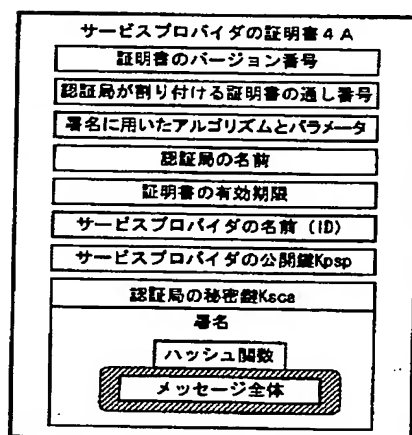 サービスプロバイダの証明書4A
証明書のバージョン番号
認証局が割り付ける証明書の通し番号
署名に用いたアルゴリズムとパラメータ
認証局の名前
証明書の有効期限
サービスプロバイダの名前（ID）
サービスプロバイダの公開鍵Kpsp
認証局の秘密鍵Ksca
署名
ハッシュ関数
メッセージ全体